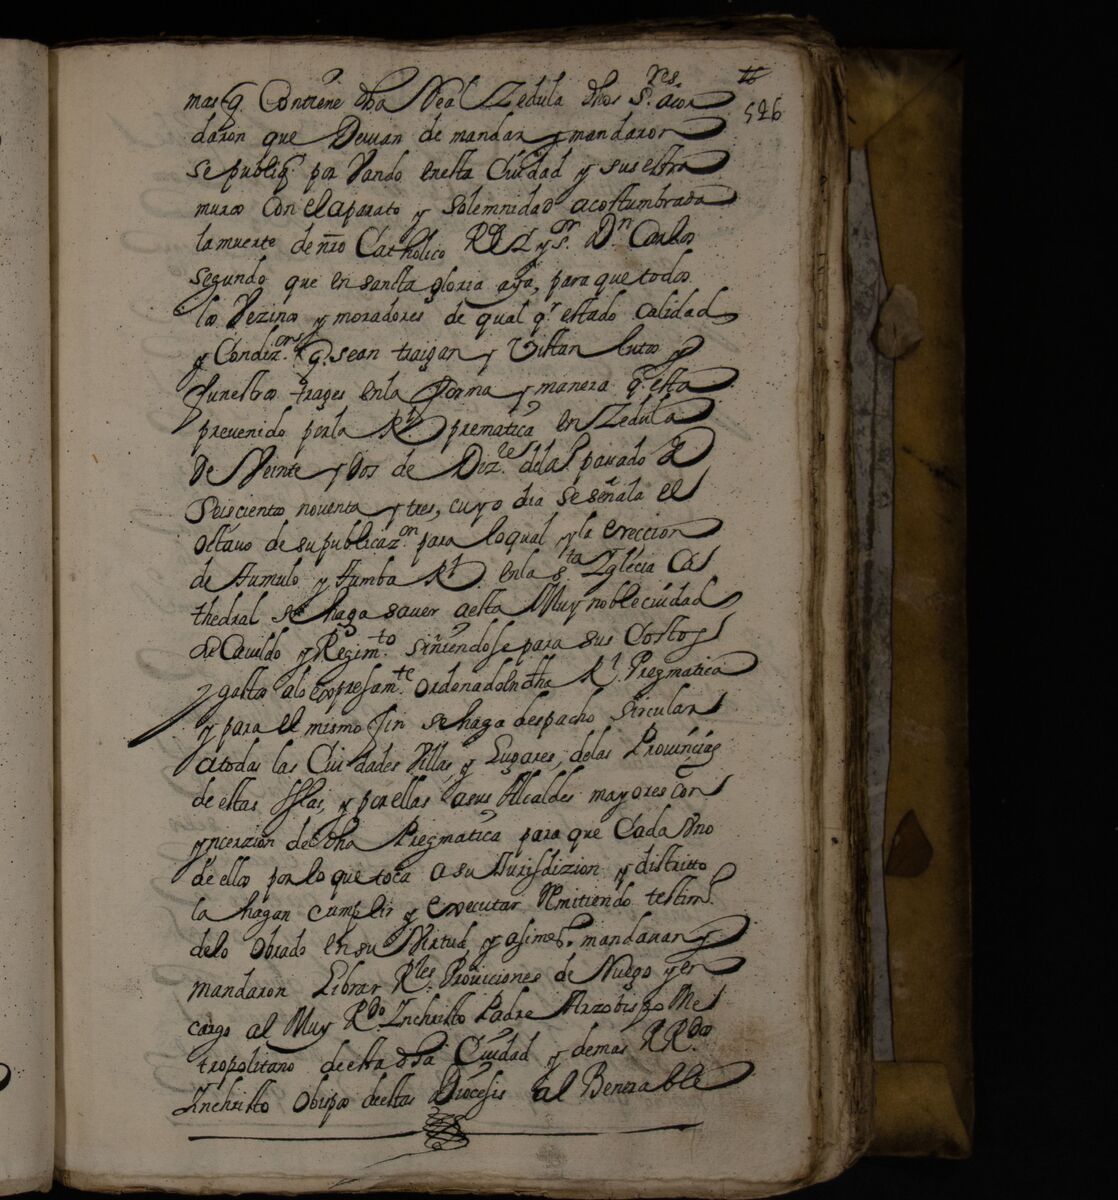 526
mas q̃. Contiene dha Real Zedula dhos S.res acor
daron que Devian de mandar y mandaron
se publiq̃ por Vando en esta Ciudad y sus estra
muros Con el aparato y solemnidad acostumbrada
la muerte de nr̃o Catholico Rey y s.or D.n Carlos
segundo que en sancta gloria aya, para que todos
los Vezinos y moradores de qual q.r estado calidad
y Condiz.on q̃. sean traigan y Vistan lutos y
funestros trages en la forma y manera q̃ esta
prevenido por la R.l prematica en Zedula
de Veinte y dos de Diz.re del a.o pasado de
Seiscientos noventa y tres, cuyo dia se señala el
octavo de su publicaz.on para lo qual y la ereccion
de tumulo y tumba R.l en la s.ta Yglecia Ca
thedral se haga saver a esta Muy noble ciudad
de Cavildo y Regim.to siñiendose para sus Costos
y gastos a lo expresam.te ordenado en dha R.l Pregmatica
y para el mismo fin se haga despacho sircular
a todas las Ciudades Villas y Lugares de las Provincias
de estas Yslas, y por ellas a sus Alcaldes mayores con
yncerzion de dha Pregmatica para que Cada Vno
de ellos por lo que toca a su Jurisdizion y distritto
la hagan cumplir y executar Remitiendo testim.o
de lo obrado en su Virtud, y asimes.o mandavan y
mandaron Librar R.les Proviciones de Ruego y en
cargo al Muy R.do Inchristo Padre Arzobispo Me
tropolitano de esta dha Ciudad y demas RR.dos
Inchristo obispos de estas Diocesis al Benerable